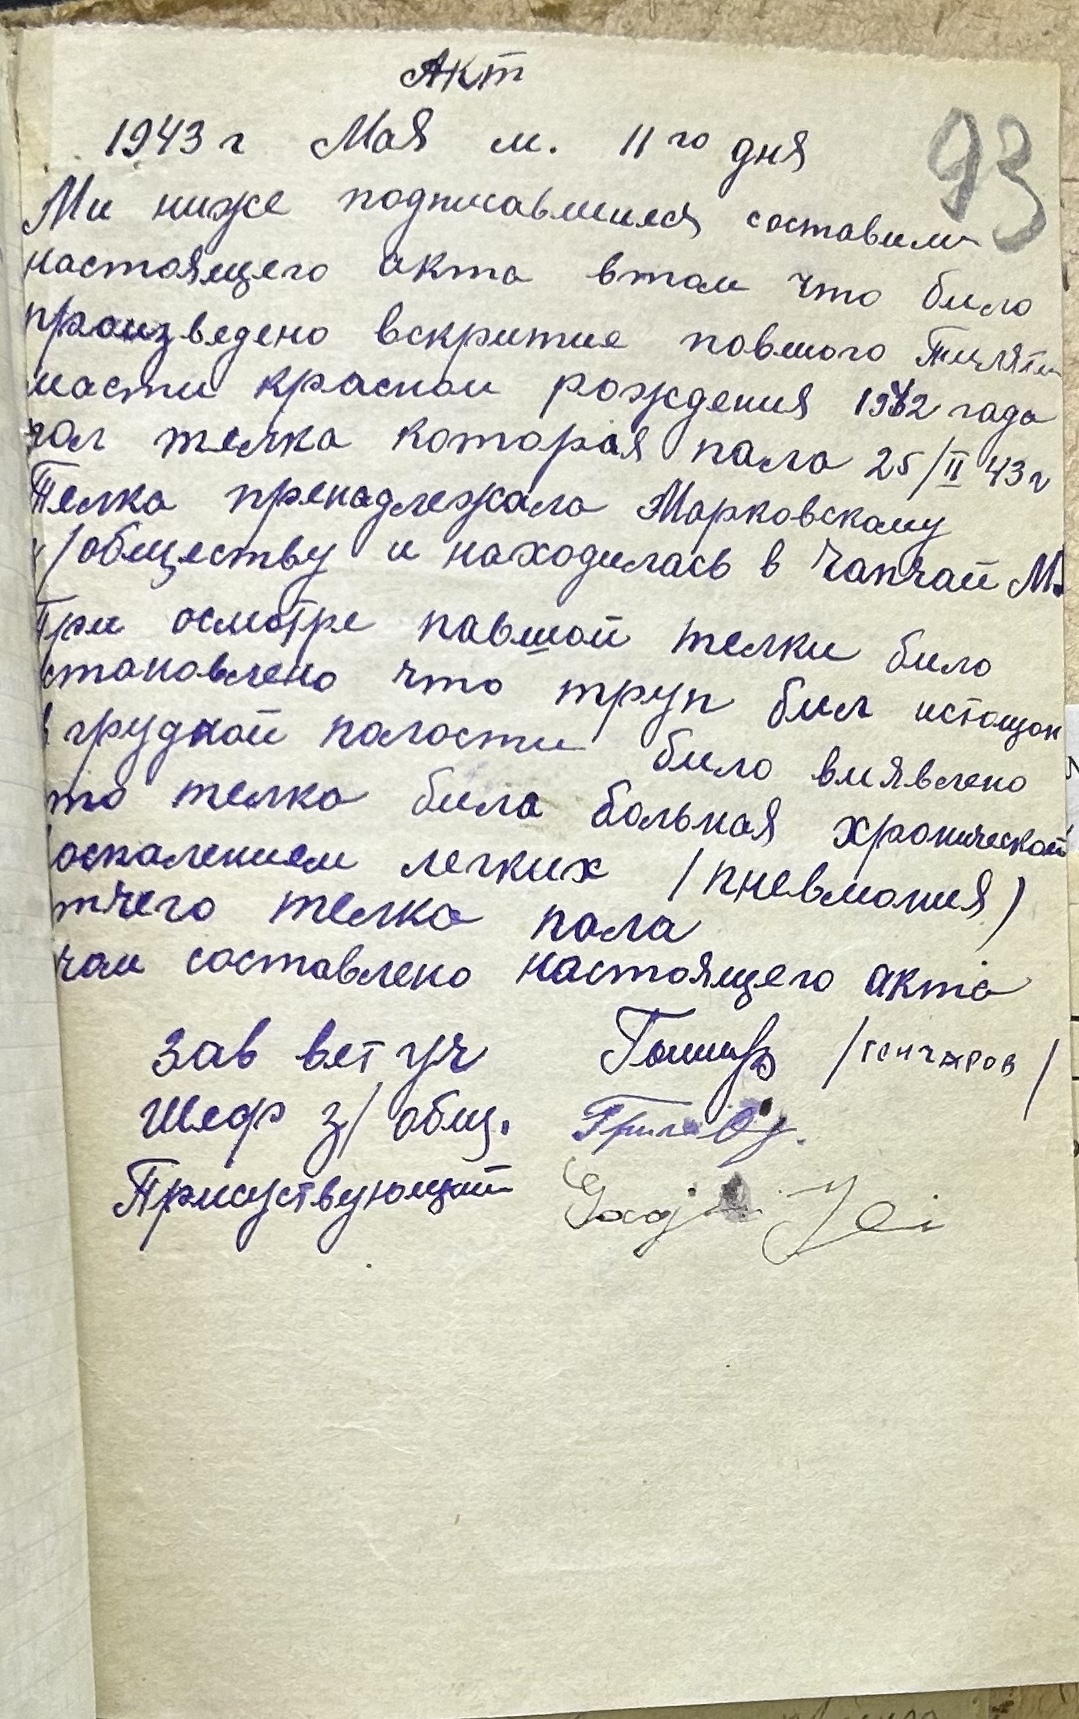 Акт
1943 г Мая м. 11го дня
93
Ми ниже подписавшиеся составили
настоящего акта втом что било
произведено вскритие повшого Тиляти
масти красной рождения 1942 года
пол телка которая пала 25/II 43 г
Телка пренадлежала Марковскому
з/обществу и находилась в Чапчай М.
При осмотре павшой телки било
становлено что труп бил истощон
в грудной полости било виявлено
то телка била больная хронической
оспалением легких /пневмония)
тчего телка пала
чом составлено настоящего акта
Зав вет уч /гончаров/
Шеф з/общ.
Присуствующий